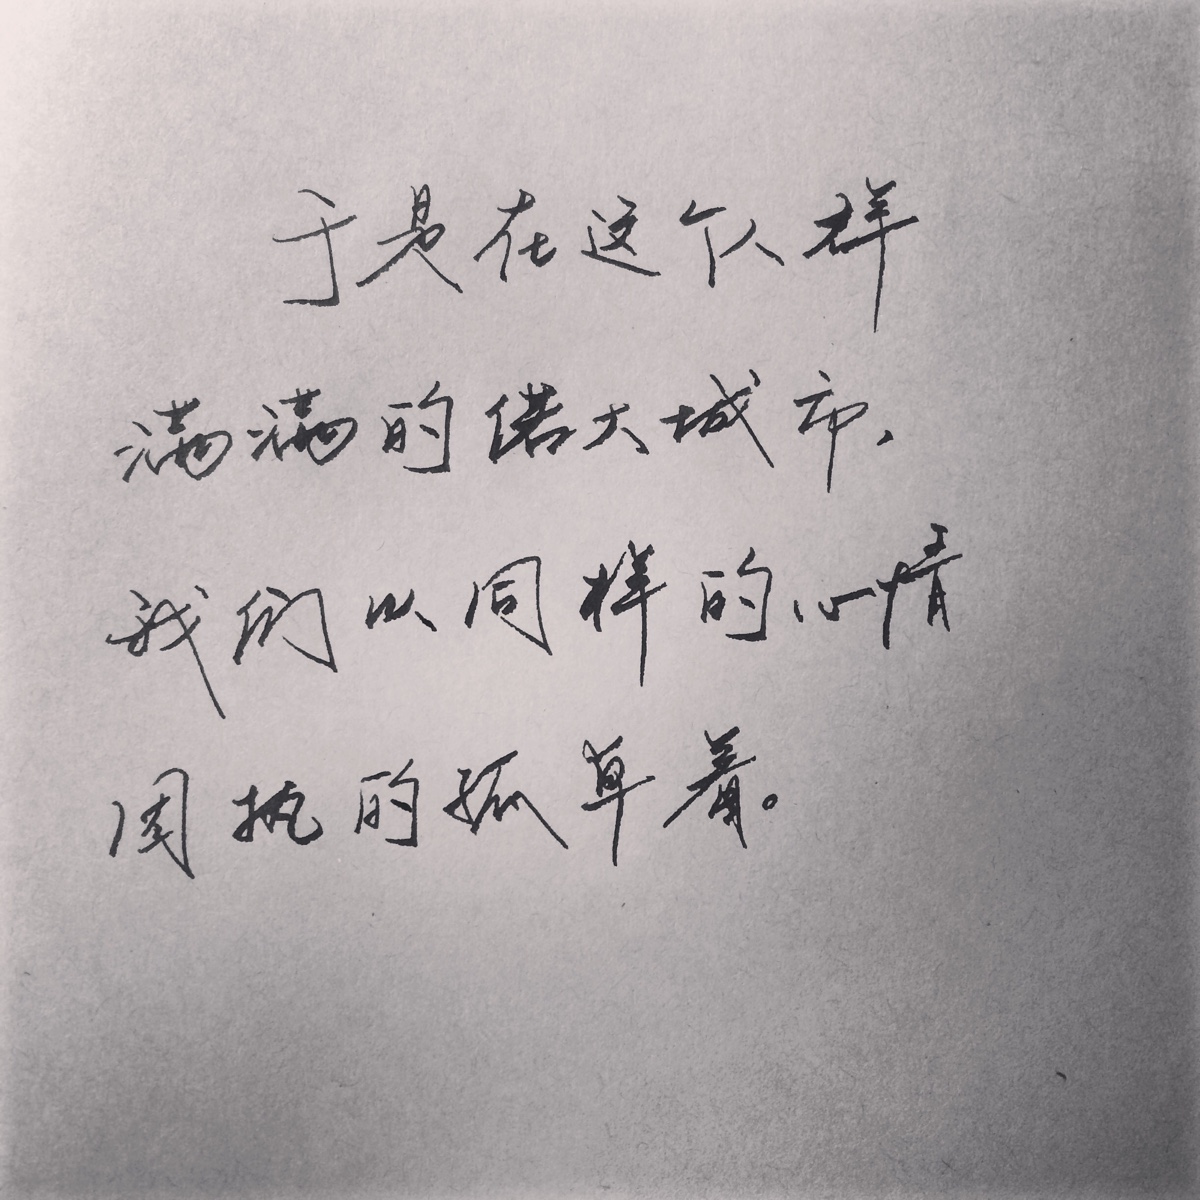 于是在这个人群
满满的偌大城市，
我们以同样的心情
固执的孤单着。